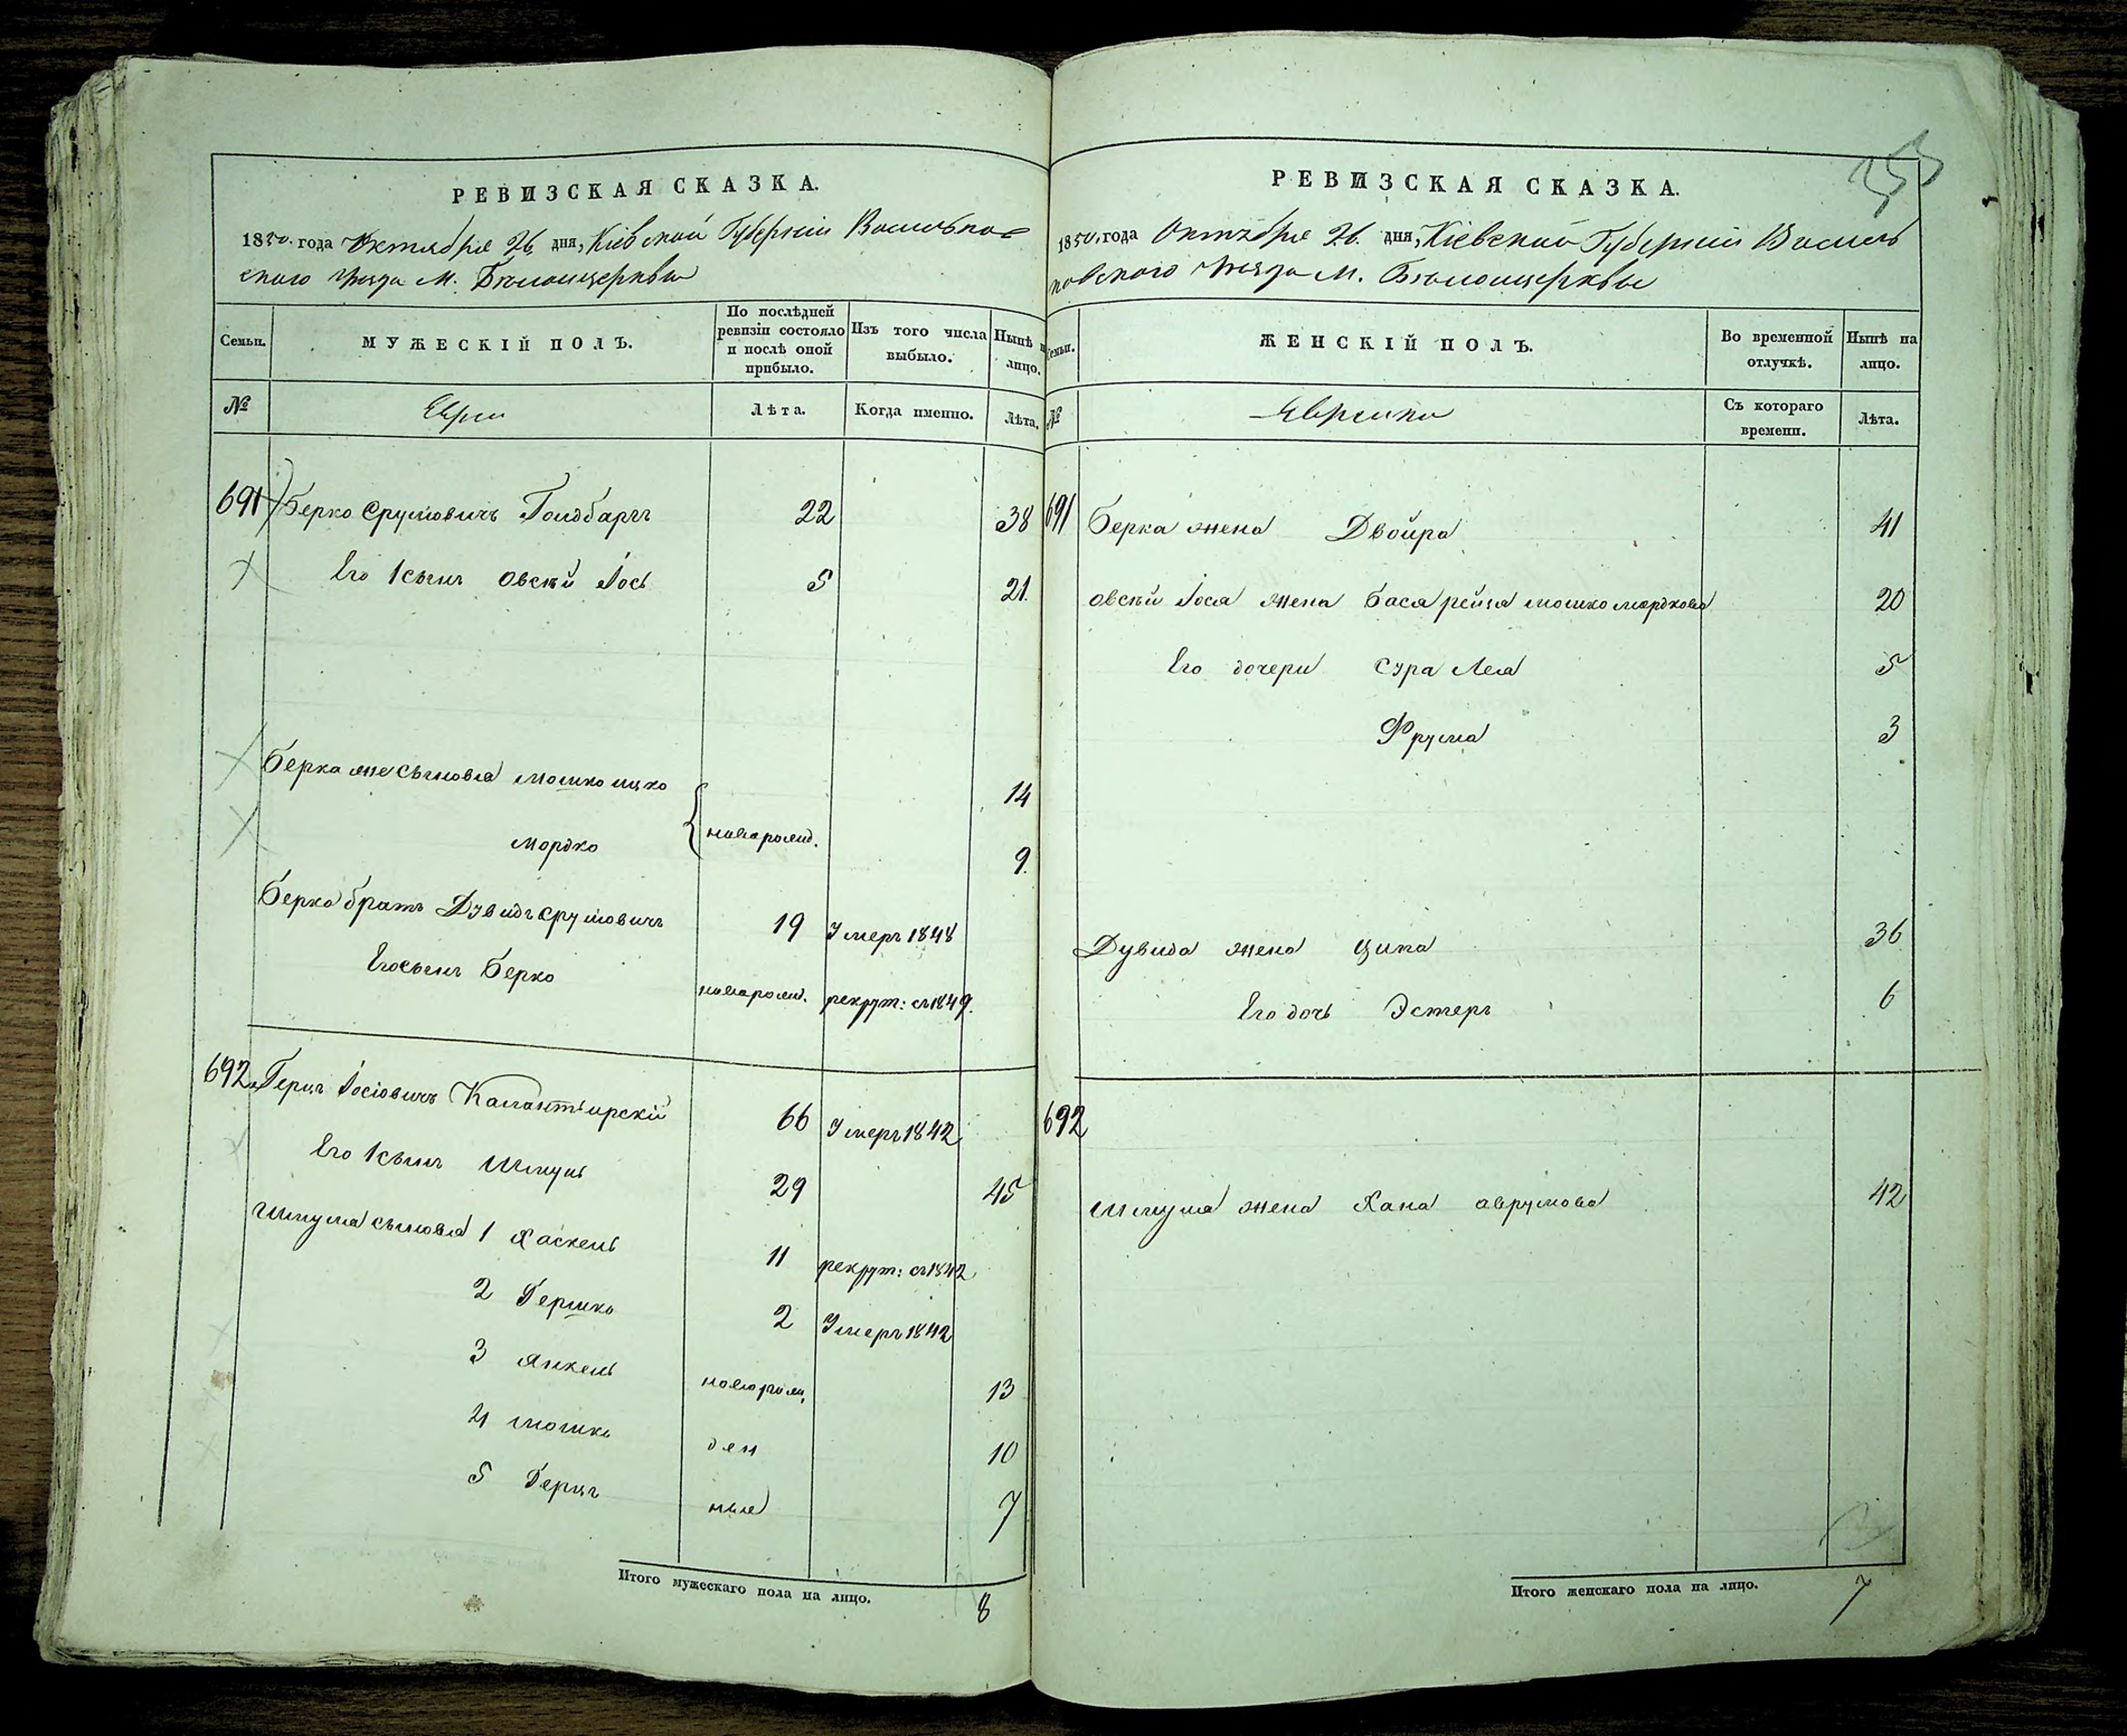 РЕВИЗСКАЯ СКАЗКА.
1850. года Октября 26 дня, Кіевской Губерніи Васильков
скаго уезда М. Белоцерквы
Семьи.
МУЖЕСКІЙ ПОЛЪ.
По послѣдней ревизіи состояло и послѣ оной прибыло.
Изъ того числа выбыло.
Нынѣ н лицо.
№
Евреи
Лѣта.
Когда именно.
Лѣта.
691 Берко Срулювичъ Голдбаргъ 22 38
Его 1 сынъ Овсѣй Іось 5 21.
Берка же сыновья Мошко Ицко 14
новорожд.
Мордко 9.
Берка братъ Дувидъ Срулювичъ 19 Умеръ 1848
Его сынъ Берко новорожд. рекрут: съ 1849.
692. Герцъ Іосіовичъ 66 Умеръ 1842
Его 1 сынъ Шмуль 29 45
Шмуля сыновья 1 Хаскель 11 рекрут: съ 1842
2 Гершко 2 Умеръ 1842
3 Янкель новорож, 13
4 Мошко ден 10
5 Герцъ ные 7
Итого мужескаго пола на лицо. 8
353
РЕВИЗСКАЯ СКАЗКА.
1850, года Октября 26. дня, Кіевской Губерніи Василь
ковского уезда М. Белоцерквы
Семьи.
ЖЕНСКІЙ ПОЛЪ.
Во временной отлучкѣ.
Нынѣ на лицо.
№
Еврейки
Съ котораго времени.
Лѣта.
691 Берка жена Двойра 41
Овсѣй Іося жена Бася Рейзя Мошко Мордкова 20
Его дочери Сура Лея 5
Фрума 3
Дувида жена Ципа 36
Его дочь Эстеръ 6
692
Шмуля жена Хана Аврумова 42
Итого женскаго пола на лицо. 7